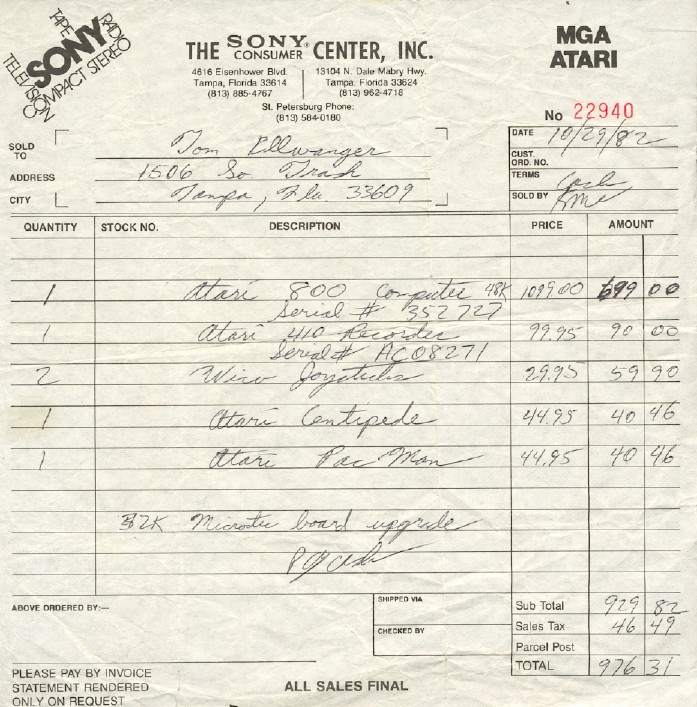 TAPE RADIO
SONY
TELEVISION COMPACT STEREO
THE SONY® CONSUMER CENTER, INC.
4616 Eisenhower Blvd. 13104 N. Dale Mabry Hwy.
Tampa, Florida 33614 Tampa, Florida 33624
(813) 885-4767 (813) 962-4718
St. Petersburg Phone:
(813) 584-0180
MGA
ATARI
No 22940
DATE 10/29/82
CUST. ORD. NO.
TERMS Cash
SOLD BY
SOLD TO Tom Ellwanger
ADDRESS 1506 So Trask
CITY Tampa, Fla. 33609
QUANTITY STOCK NO. DESCRIPTION PRICE AMOUNT
1 Atari 800 Computer 48K 1099.00 699 00
Serial # 352727
1 Atari 410 Recorder 99.95 90 00
Serial # AC08271
2 Wico Joysticks 29.95 59 90
1 Atari Centipede 44.95 40 46
1 Atari Pac Man 44.95 40 46
32K Microtec board upgrade
Sub Total 929 82
Sales Tax 46 49
Parcel Post
TOTAL 976 31
ABOVE ORDERED BY:—
SHIPPED VIA
CHECKED BY
PLEASE PAY BY INVOICE
STATEMENT RENDERED
ONLY ON REQUEST
ALL SALES FINAL